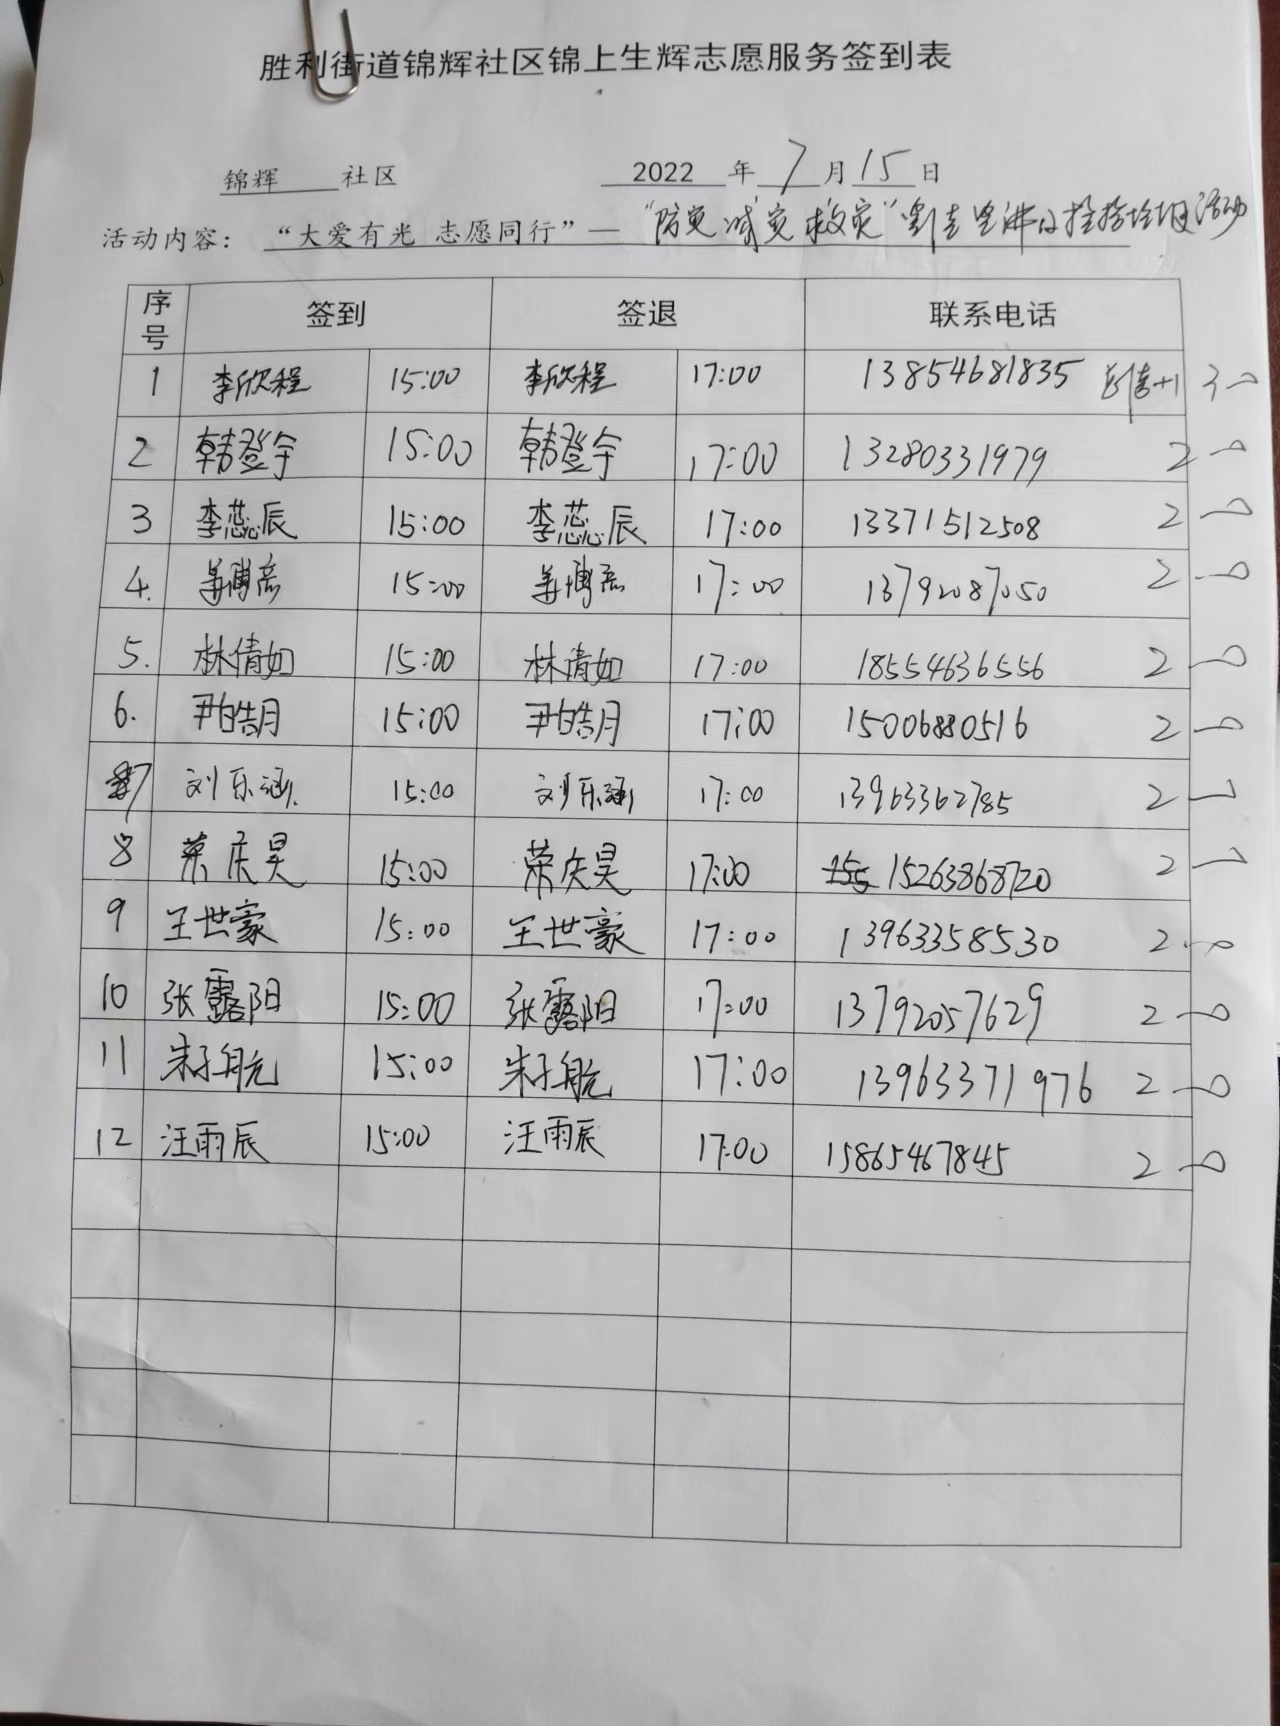 胜利街道锦辉社区锦上生辉志愿服务签到表
锦辉 社区 2022 年 7 月 15 日
活动内容： “大爱有光 志愿同行”— “防灾减灾救灾” 活动
序号 签到 签退 联系电话
1 李欣程 15:00 李欣程 17:00 13854681835 +1 3
2 韩登宇 15:00 韩登宇 17:00 13280331979 2
3 李蕊辰 15:00 李蕊辰 17:00 13371512508 2
4. 15:00 17:00 13792087050 2
5. 林倩如 15:00 林倩如 17:00 18554636556 2
6. 尹皓月 15:00 尹皓月 17:00 15006880516 2
7 刘乐涵 15:00 刘乐涵 17:00 13963362785 2
8 荣庆昊 15:00 荣庆昊 17:00 15263868720 2
9 王世豪 15:00 王世豪 17:00 13963358530 2
10 张露阳 15:00 张露阳 17:00 13792057629 2
11 朱子航 15:00 朱子航 17:00 13963371976 2
12 汪雨辰 15:00 汪雨辰 17:00 15865467845 2